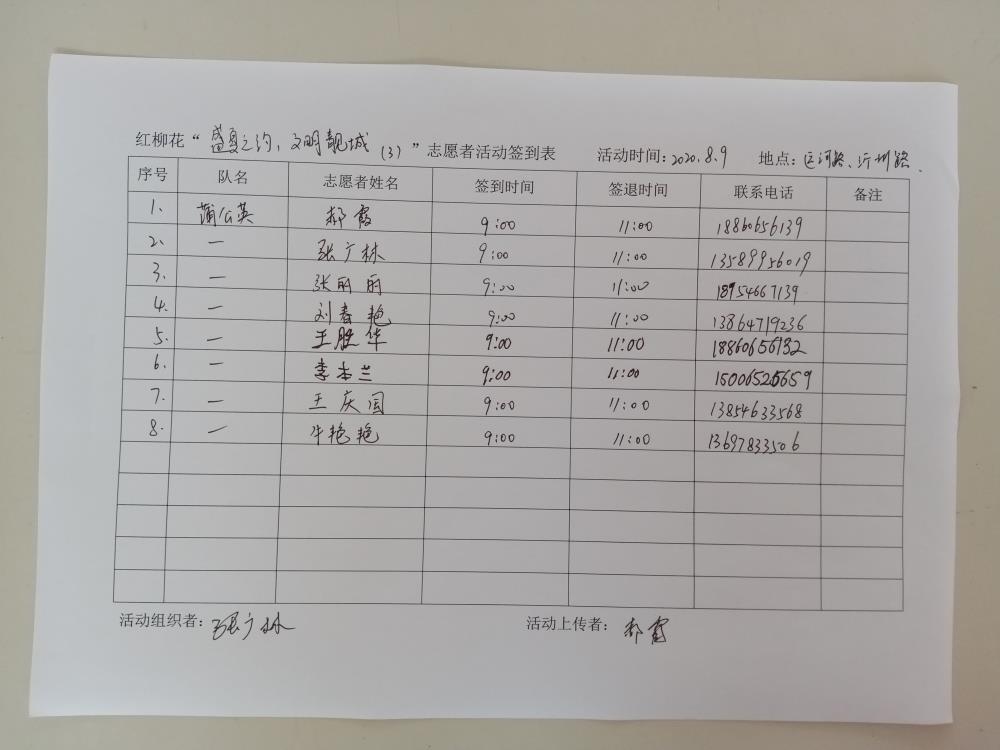 红柳花“盛夏之约，文明靓城（3）”志愿者活动签到表 活动时间：2020.8.9 地点：运河路、沂州路.
序号 队名 志愿者姓名 签到时间 签退时间 联系电话 备注
1、 蒲公英 郝霞 9:00 11:00 18860656139
2. 一 张广林 9:00 11:00 13589956019
3. 一 张丽丽 9:00 11:00 18954667139
4. 一 刘春艳 9:00 11:00 13864719236
5. 一 王胜华 9:00 11:00 18860656132
6. 一 李本兰 9:00 11:00 15006525659
7. 一 王庆国 9:00 11:00 13854633568
8. 一 牛艳艳 9:00 11:00 13697833506
活动组织者：张广林 活动上传者：郝霞